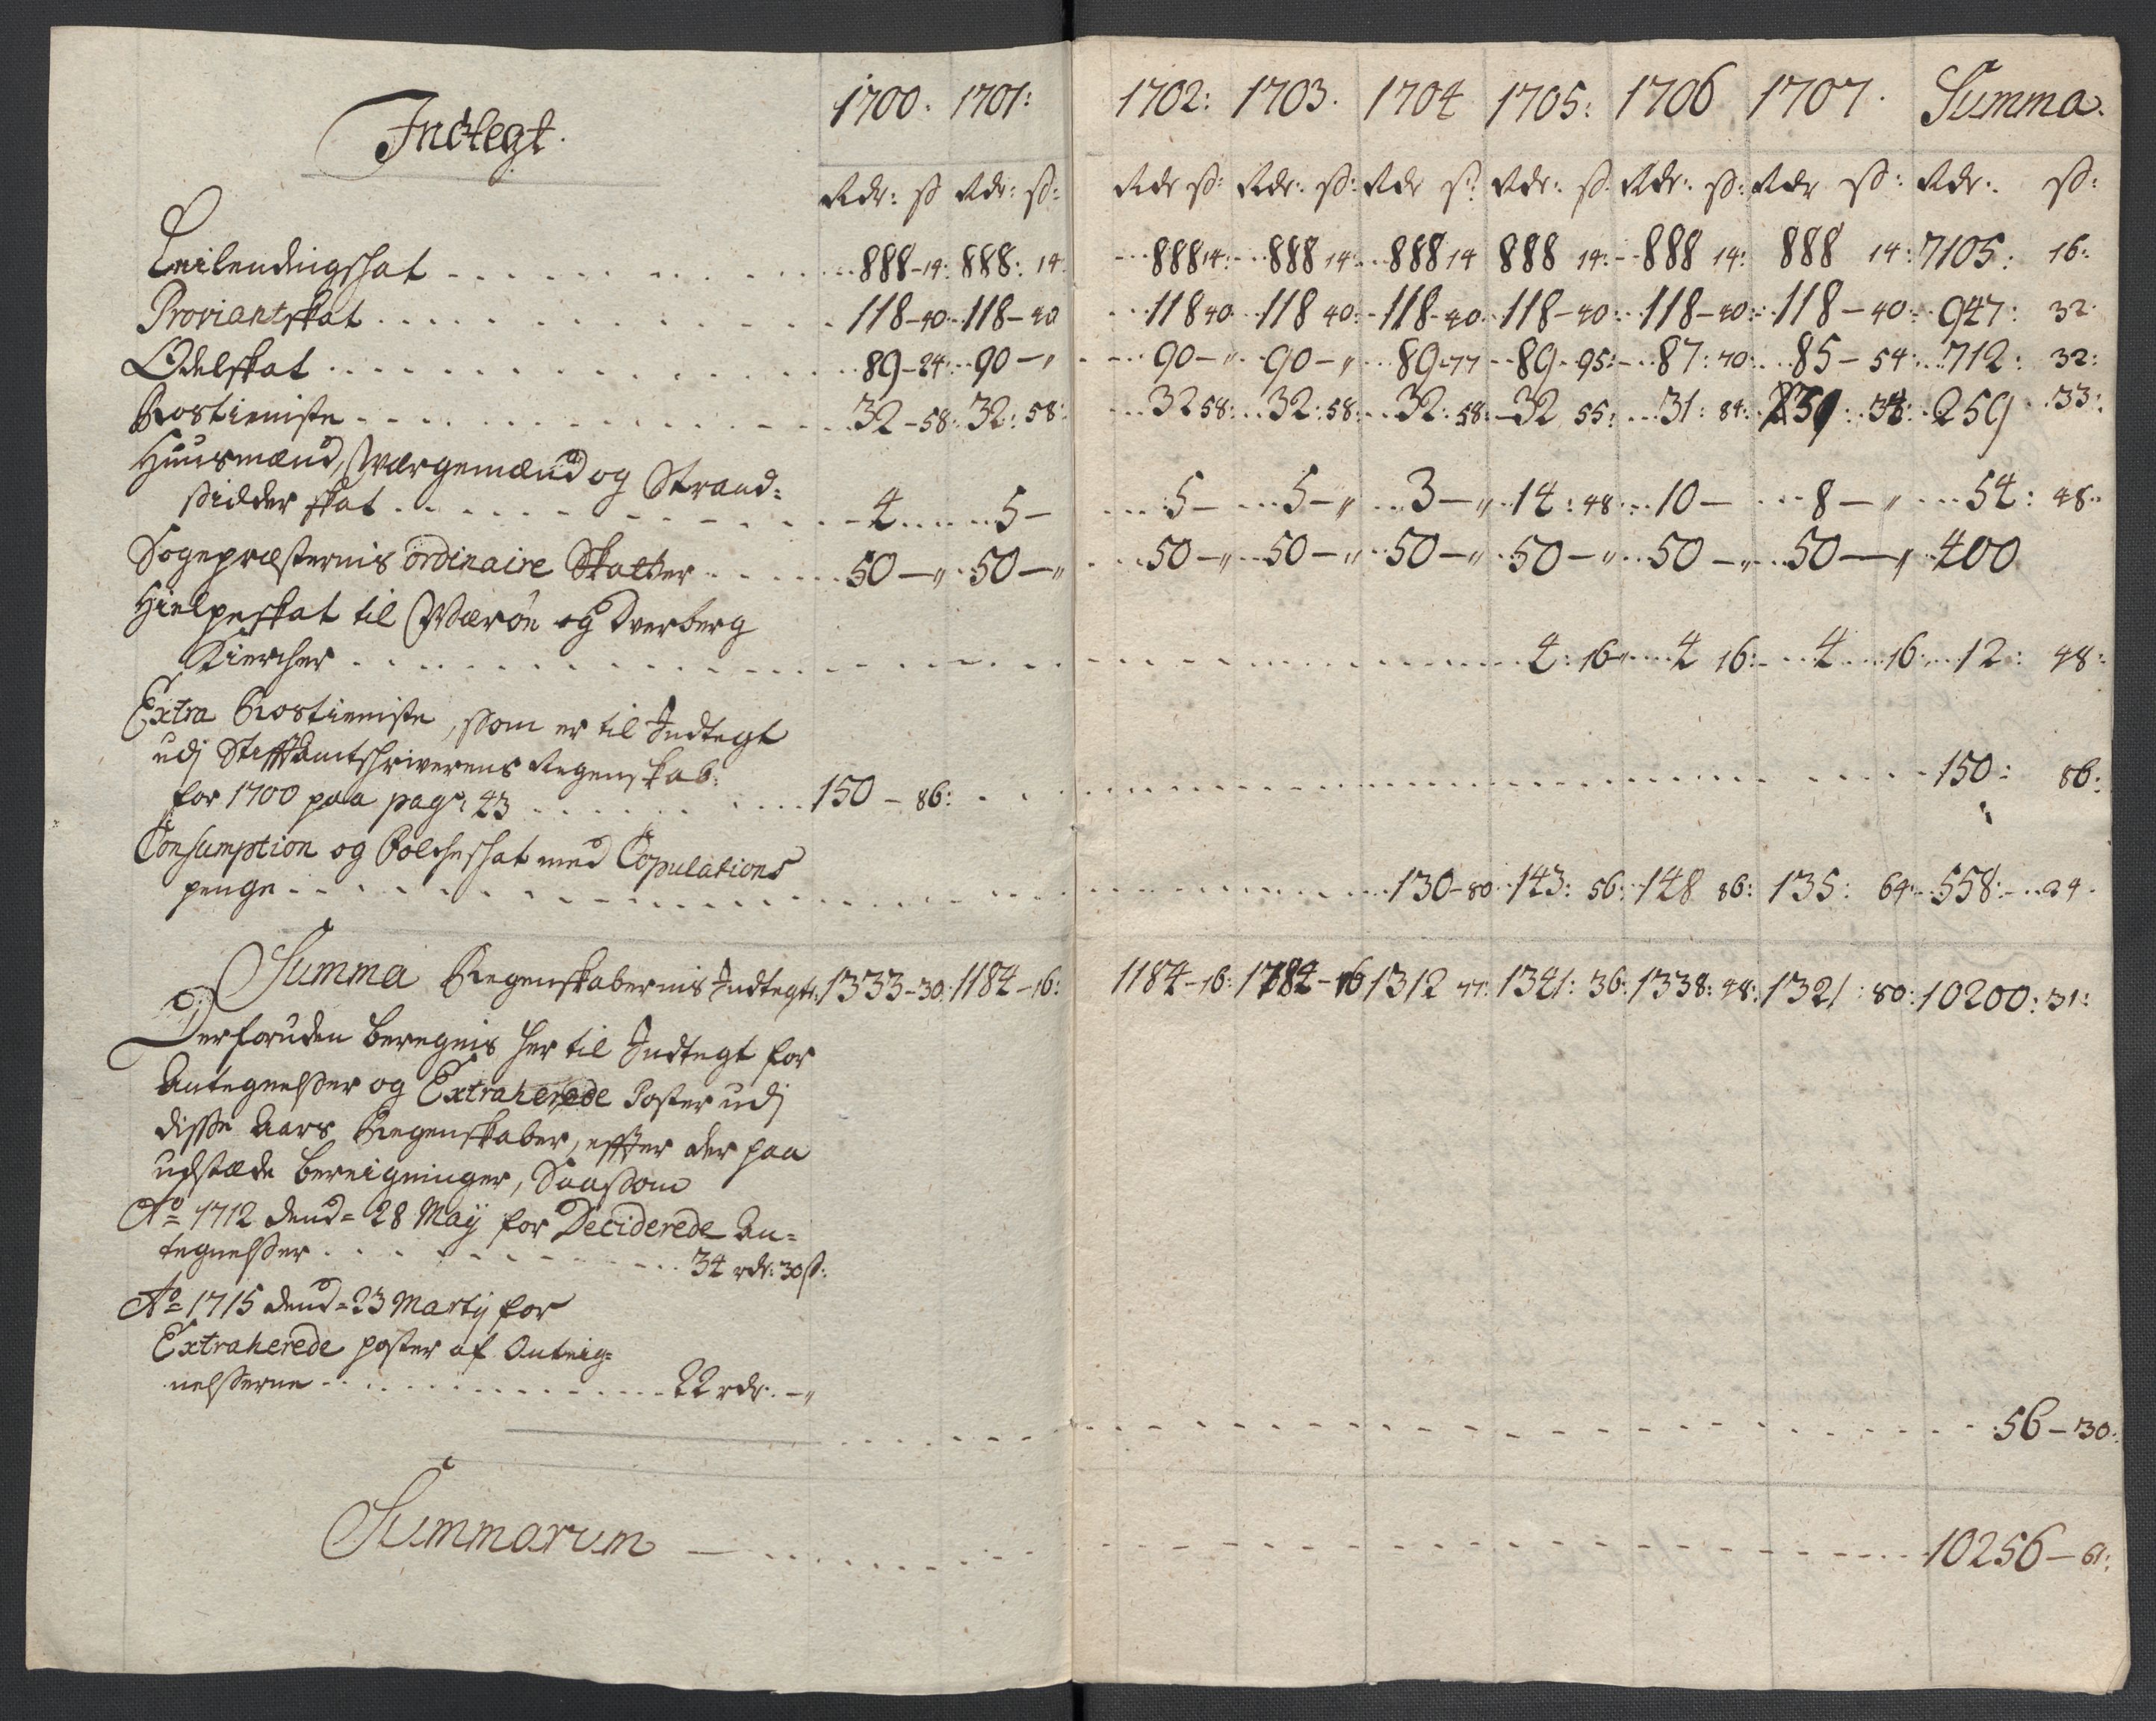 Indtegt. 1700. 1701: 1702: 1703. 1704 1705: 1706 1707. Summa.
Rdr: ß Rdr: ß: Rdr ß: Rdr: ß: Rdr ß: Rdr: ß: Rdr: ß: Rdr ß: Rdr: ß:
Leilendingschat 888-14: 888: 14: 888 14: 888 14: 888 14 888 14: 888 14: 888 14: 7105: 16:
Proviantskat 118-40 118-40 118 40 118 40: 118-40 118-40: 118-40: 118-40: 947: 32
Odelskat 89-24: 90-" 90-" 90-" 89-77 89-95: 87:70: 85-54: 712: 32:
Rostieniste 32-58: 32:58: 32 58: 32:58: 32:58: 32 55: 31:84: 259 33:
Huusmænd, Værgemænd og Strand-
sidder skat 4 5- 5- 5-" 3-" 14:48: 10- 8-" 54: 48:
Sogepræsternis ordinaire Skatter 50-" 50-" 50-" 50-" 50-" 50-" 50-" 50-" 400
Hielpeskat til Værøe og Dverberg
Kiercher 4:16 4 16: 4 16: 12: 48:
Extra Rostieniste, som er til Indtegt
udj Stifftamtschriverens Regenskab:
for 1700 paa pag: 43 150-86: 150: 86:
Consumption og Folcheschat med Copulations
penge 130-80 143:56: 148 86: 135: 64: 558: 94.
Summa Regenskabernis Indtegt: 1333-30: 1184-16: 1184-16: 1184-16 1312 77: 1341:36: 1338:48: 1321:80: 10200:31:
Derforuden beregnis her til Indtegt for
Antegnelsser og Extraherede Poster udj
disse Aars Regenskaber, effter der paa
udstæde bereigninger, Saasom
Aº 1712 dend= 28 Maij for Deciderede An=
tegnelsser 34 rdr: 30 ß:
Aº 1715 dend= 23 Martij for
Extraherede poster af Anteig=
nelsserne 22 rdr. -"
56-30:
Summarum 10256-61: